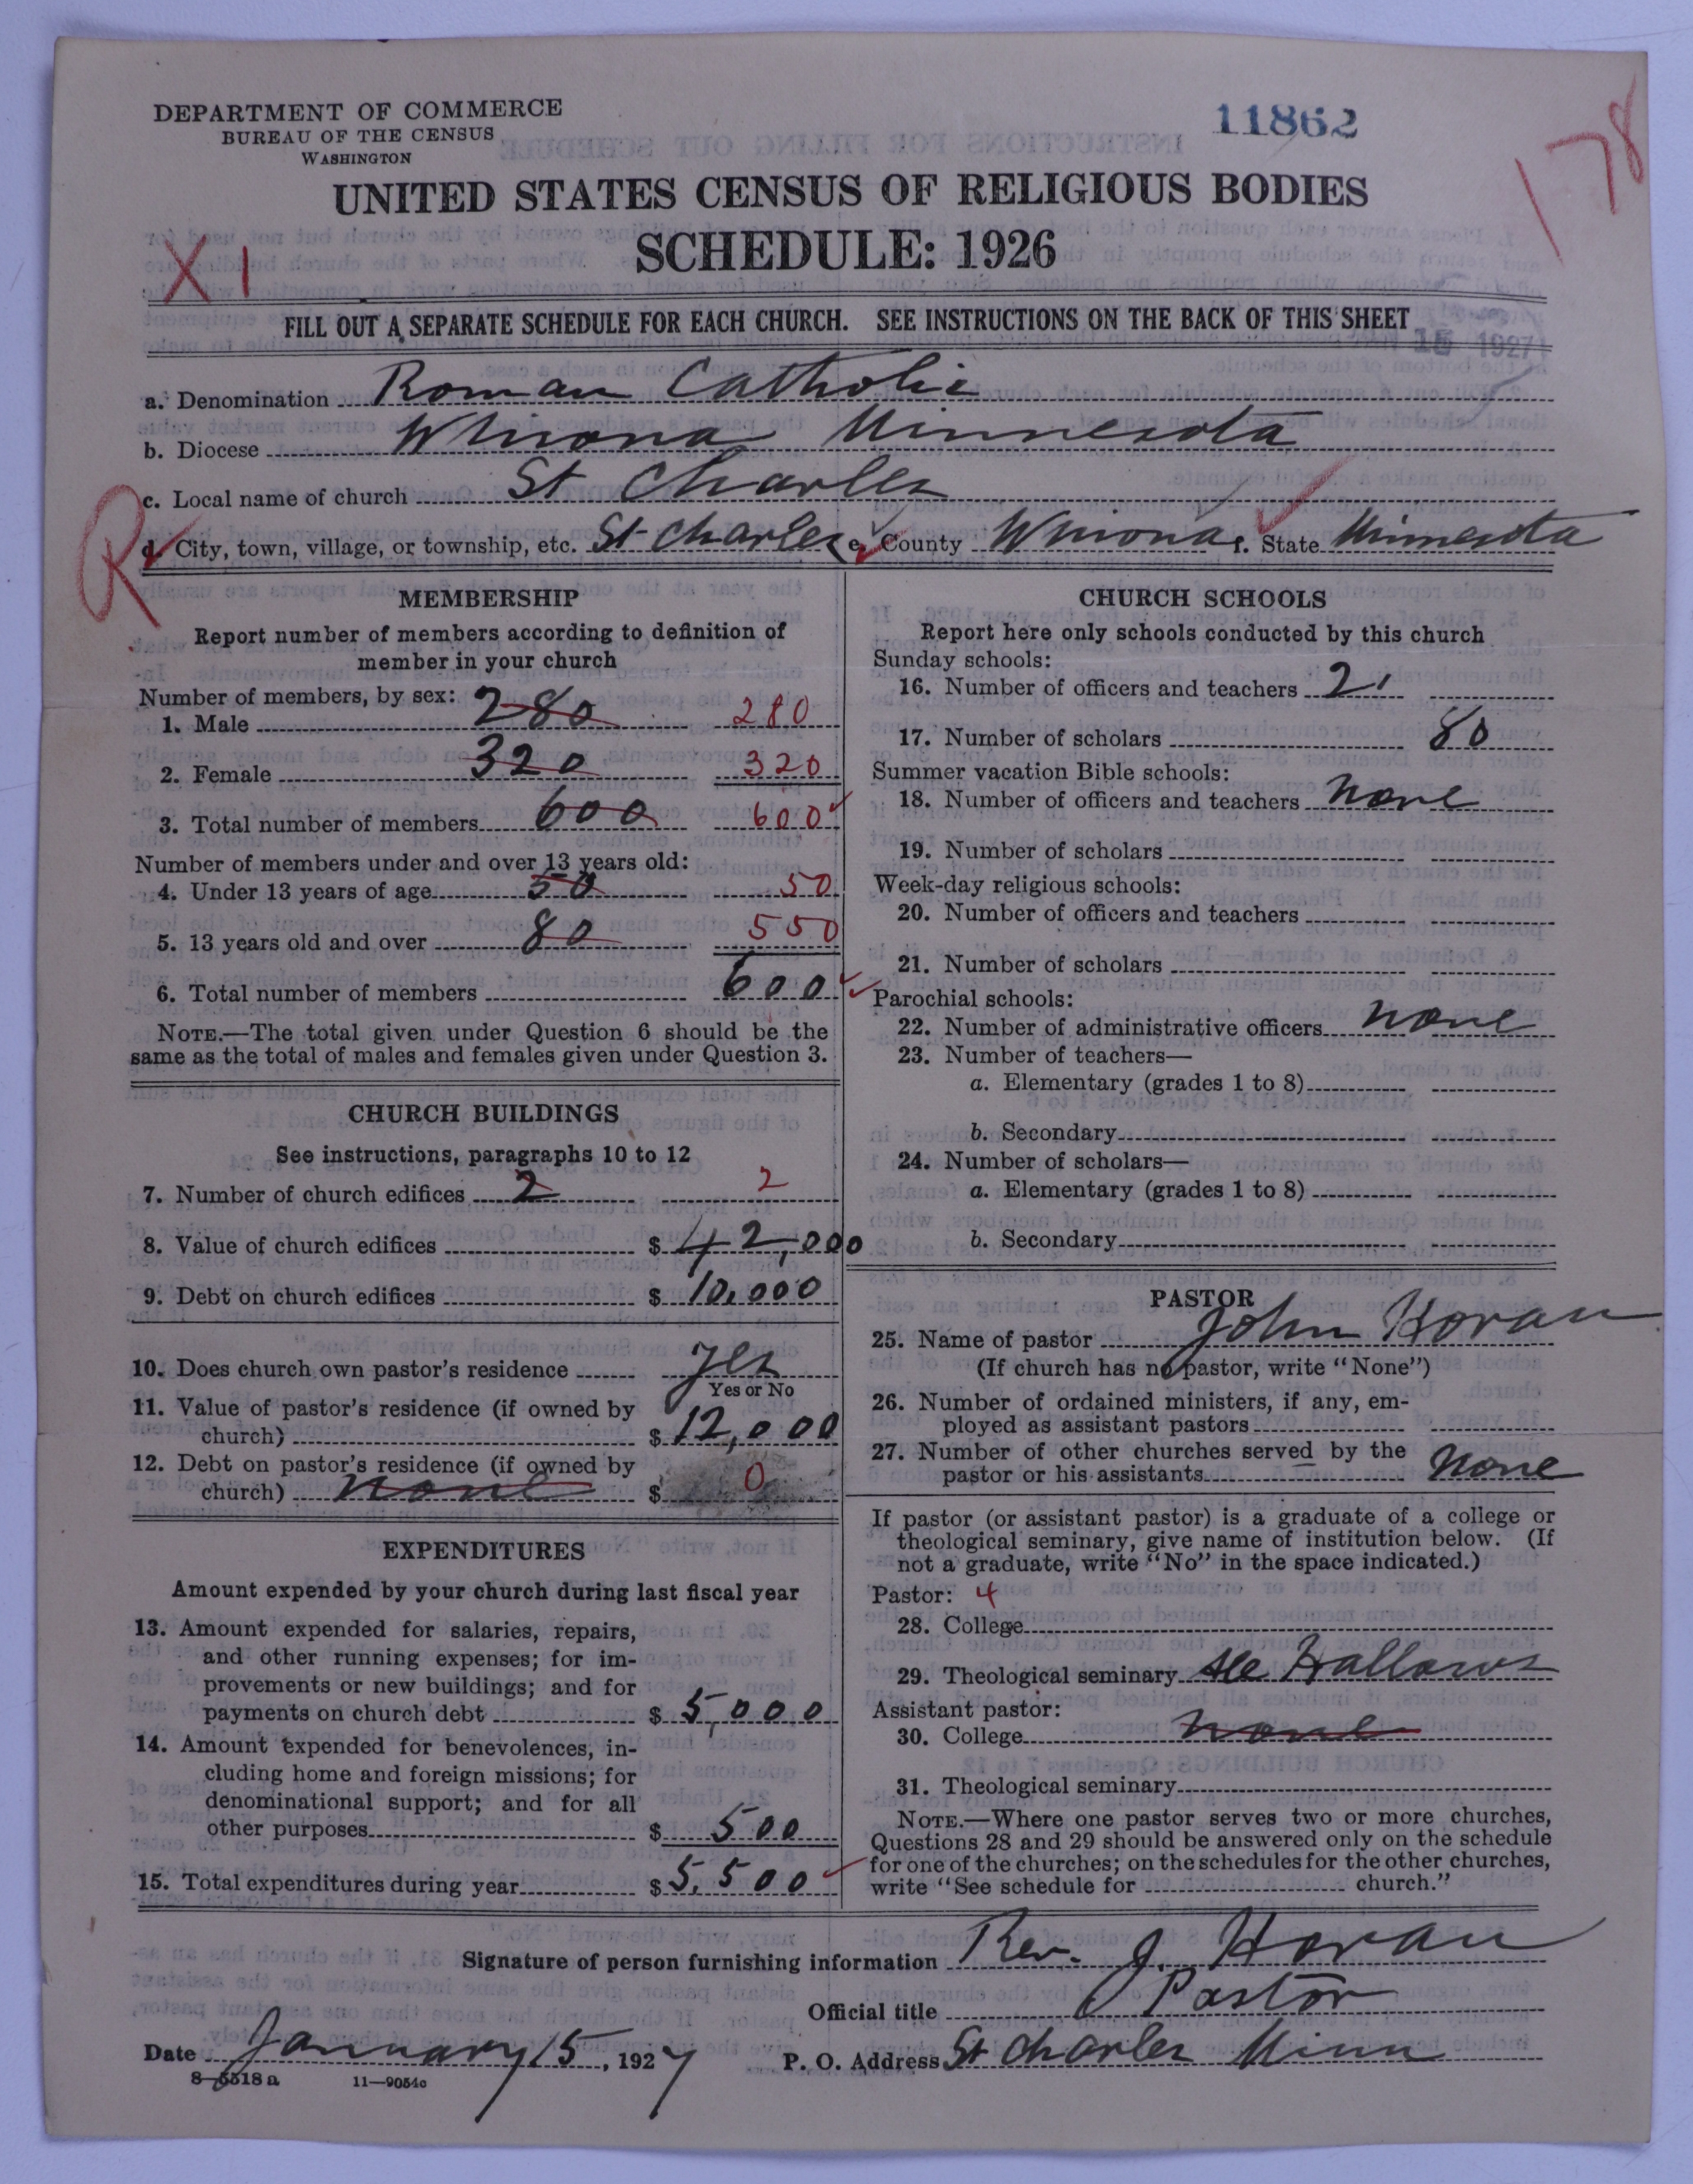 DEPARTMENT OF COMMERCE
BUREAU OF THE CENSUS
WASHINGTON
11862
178
UNITED STATES CENSUS OF RELIGIOUS BODIES
SCHEDULE: 1926
XI
FILL OUT A SEPARATE SCHEDULE FOR EACH CHURCH. SEE INSTRUCTIONS ON THE BACK OF THIS SHEET
15 1927
a. Denomination Roman Catholic
b. Diocese Winona Minnesota
c. Local name of church St Charles
R
d. City, town, village, or township, etc. St Charles e. County Winona f. State Minnesota
MEMBERSHIP
Report number of members according to definition of
member in your church
Number of members, by sex:
1. Male 280 280
2. Female 320 320
3. Total number of members 600 600
Number of members under and over 13 years old:
4. Under 13 years of age 50 50
5. 13 years old and over 80 550
6. Total number of members 600
NOTE.—The total given under Question 6 should be the
same as the total of males and females given under Question 3.
CHURCH BUILDINGS
See instructions, paragraphs 10 to 12
7. Number of church edifices 2 2
8. Value of church edifices $ 42,000
9. Debt on church edifices $ 10,000
10. Does church own pastor's residence yes
Yes or No
11. Value of pastor's residence (if owned by
church) $ 12,000
12. Debt on pastor's residence (if owned by
church) none $ 0
EXPENDITURES
Amount expended by your church during last fiscal year
13. Amount expended for salaries, repairs,
and other running expenses; for im-
provements or new buildings; and for
payments on church debt $ 5,000
14. Amount expended for benevolences, in-
cluding home and foreign missions; for
denominational support; and for all
other purposes $ 500
15. Total expenditures during year $ 5,500
CHURCH SCHOOLS
Report here only schools conducted by this church
Sunday schools:
16. Number of officers and teachers 2
17. Number of scholars 80
Summer vacation Bible schools:
18. Number of officers and teachers none
19. Number of scholars
Week-day religious schools:
20. Number of officers and teachers
21. Number of scholars
Parochial schools:
22. Number of administrative officers none
23. Number of teachers—
a. Elementary (grades 1 to 8)
b. Secondary
24. Number of scholars—
a. Elementary (grades 1 to 8)
b. Secondary
PASTOR
25. Name of pastor John Horan
(If church has no pastor, write "None")
26. Number of ordained ministers, if any, em-
ployed as assistant pastors
27. Number of other churches served by the
pastor or his assistants none
If pastor (or assistant pastor) is a graduate of a college or
theological seminary, give name of institution below. (If
not a graduate, write "No" in the space indicated.)
Pastor: 4
28. College
29. Theological seminary All Hallows
Assistant pastor:
30. College none
31. Theological seminary
NOTE.—Where one pastor serves two or more churches,
Questions 28 and 29 should be answered only on the schedule
for one of the churches; on the schedules for the other churches,
write "See schedule for church."
Signature of person furnishing information Rev. J. Horan
Official title Pastor
Date January 15, 1927 P. O. Address St Charles Minn
8—5518 a 11—9054c